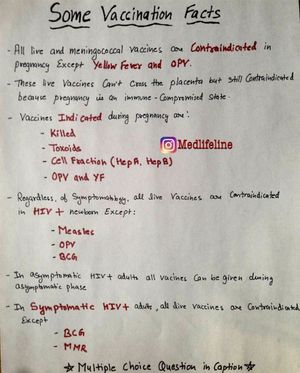 Some Vaccination Facts
- All live and meningococcal vaccines are Contraindicated in
pregnancy Except Yellow Fever and OPV.
- These live Vaccines Can't Cross the placenta but still Contraindicated
because pregnancy is an immune-Compromised State.
- Vaccines Indicated during pregnancy are:
- Killed
- Toxoids
- Cell Fraction (Hep A, Hep B)
- OPV and YF
Medlifeline
- Regardless, of Symptomatology, all live Vaccines are Contraindicated
in HIV + newborn Except:
- Measles
- OPV
- BCG
- In asymptomatic HIV+ adults all vaccines Can be given during
asymptomatic phase
- In Symptomatic HIV+ adults, all live vaccines are Contraindicated
Except
- BCG
- MMR
☆ Multiple Choice Question in Caption ☆